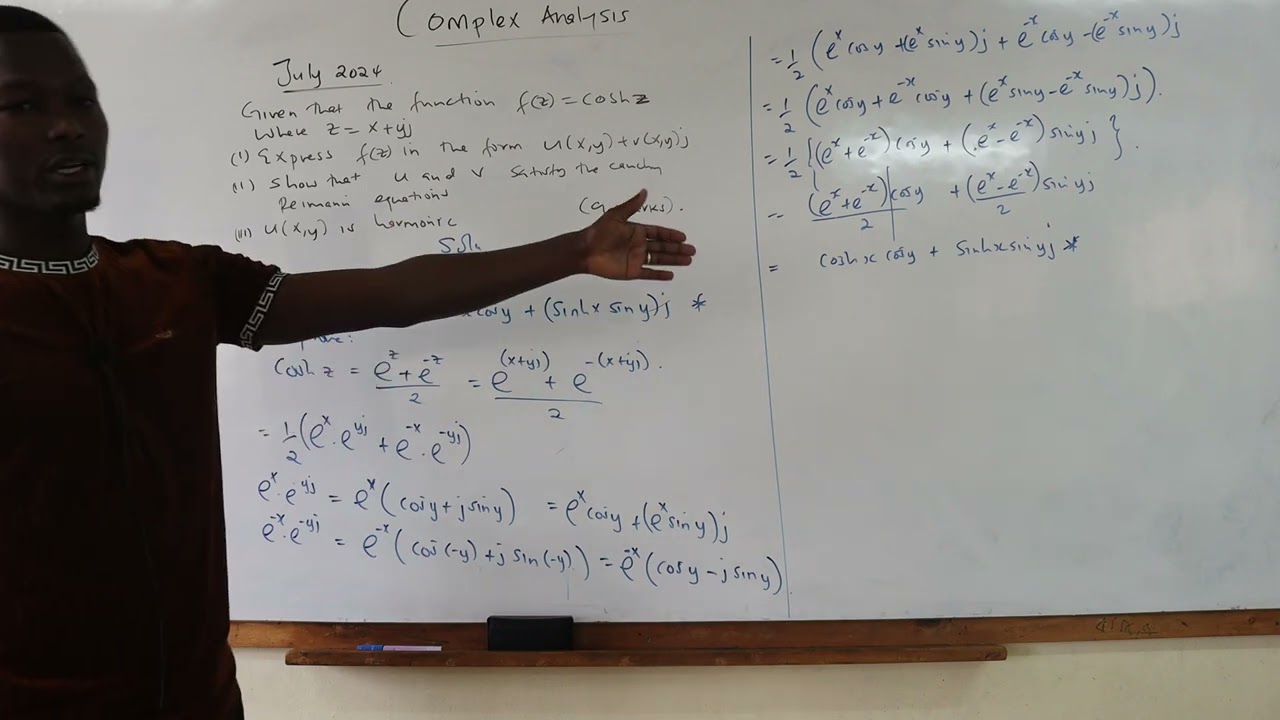 Complex Analysis
July 2024
Given that the function f(z) = cosh z
Where z = x+yj
(i) Express f(z) in the form u(x,y)+v(x,y)j
(ii) Show that u and v satisfy the cauchy
Reimann equations
(iii) u(x,y) is harmonic
Soln
cosy + (sinhx siny)j *
Cosh z = (e^z + e^-z)/2 = (e^(x+yj) + e^-(x+yj))/2 .
= 1/2 (e^x . e^yj + e^-x . e^-yj)
e^x . e^yj = e^x (cosy + j siny) = e^x cosy + (e^x siny)j
e^-x . e^-yj = e^-x (cos(-y) + j sin(-y)) = e^-x (cosy - j siny)
= 1/2 (e^x cosy + (e^x siny)j + e^-x cosy - (e^-x siny)j
= 1/2 (e^x cosy + e^-x cosy + (e^x siny - e^-x siny)j).
= 1/2 {(e^x + e^-x) cosy + (e^x - e^-x) sinyj }.
= (e^x + e^-x)/2 cosy + (e^x - e^-x)/2 sinyj
= coshx cosy + sinhx sinyj *